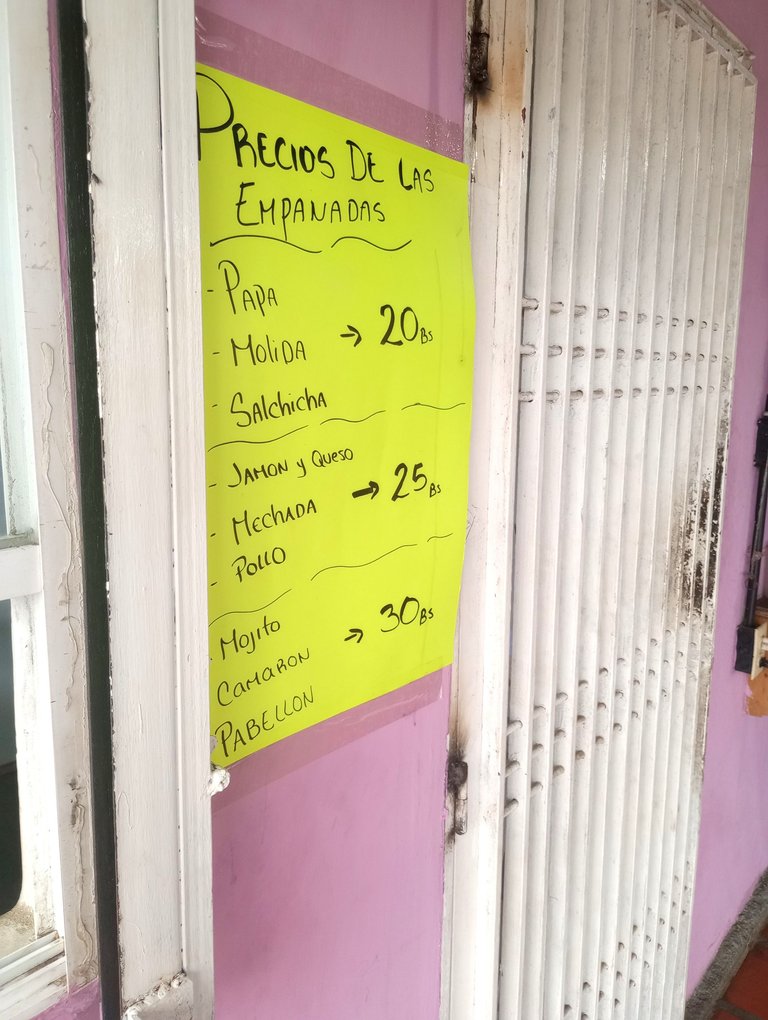 PRECIOS DE LAS
EMPANADAS
- PAPA
- MOLIDA → 20 Bs
- SALCHICHA
- JAMON y QUESO
- MECHADA → 25 Bs
- POLLO
- MOJITO
CAMARON → 30 Bs
PABELLON